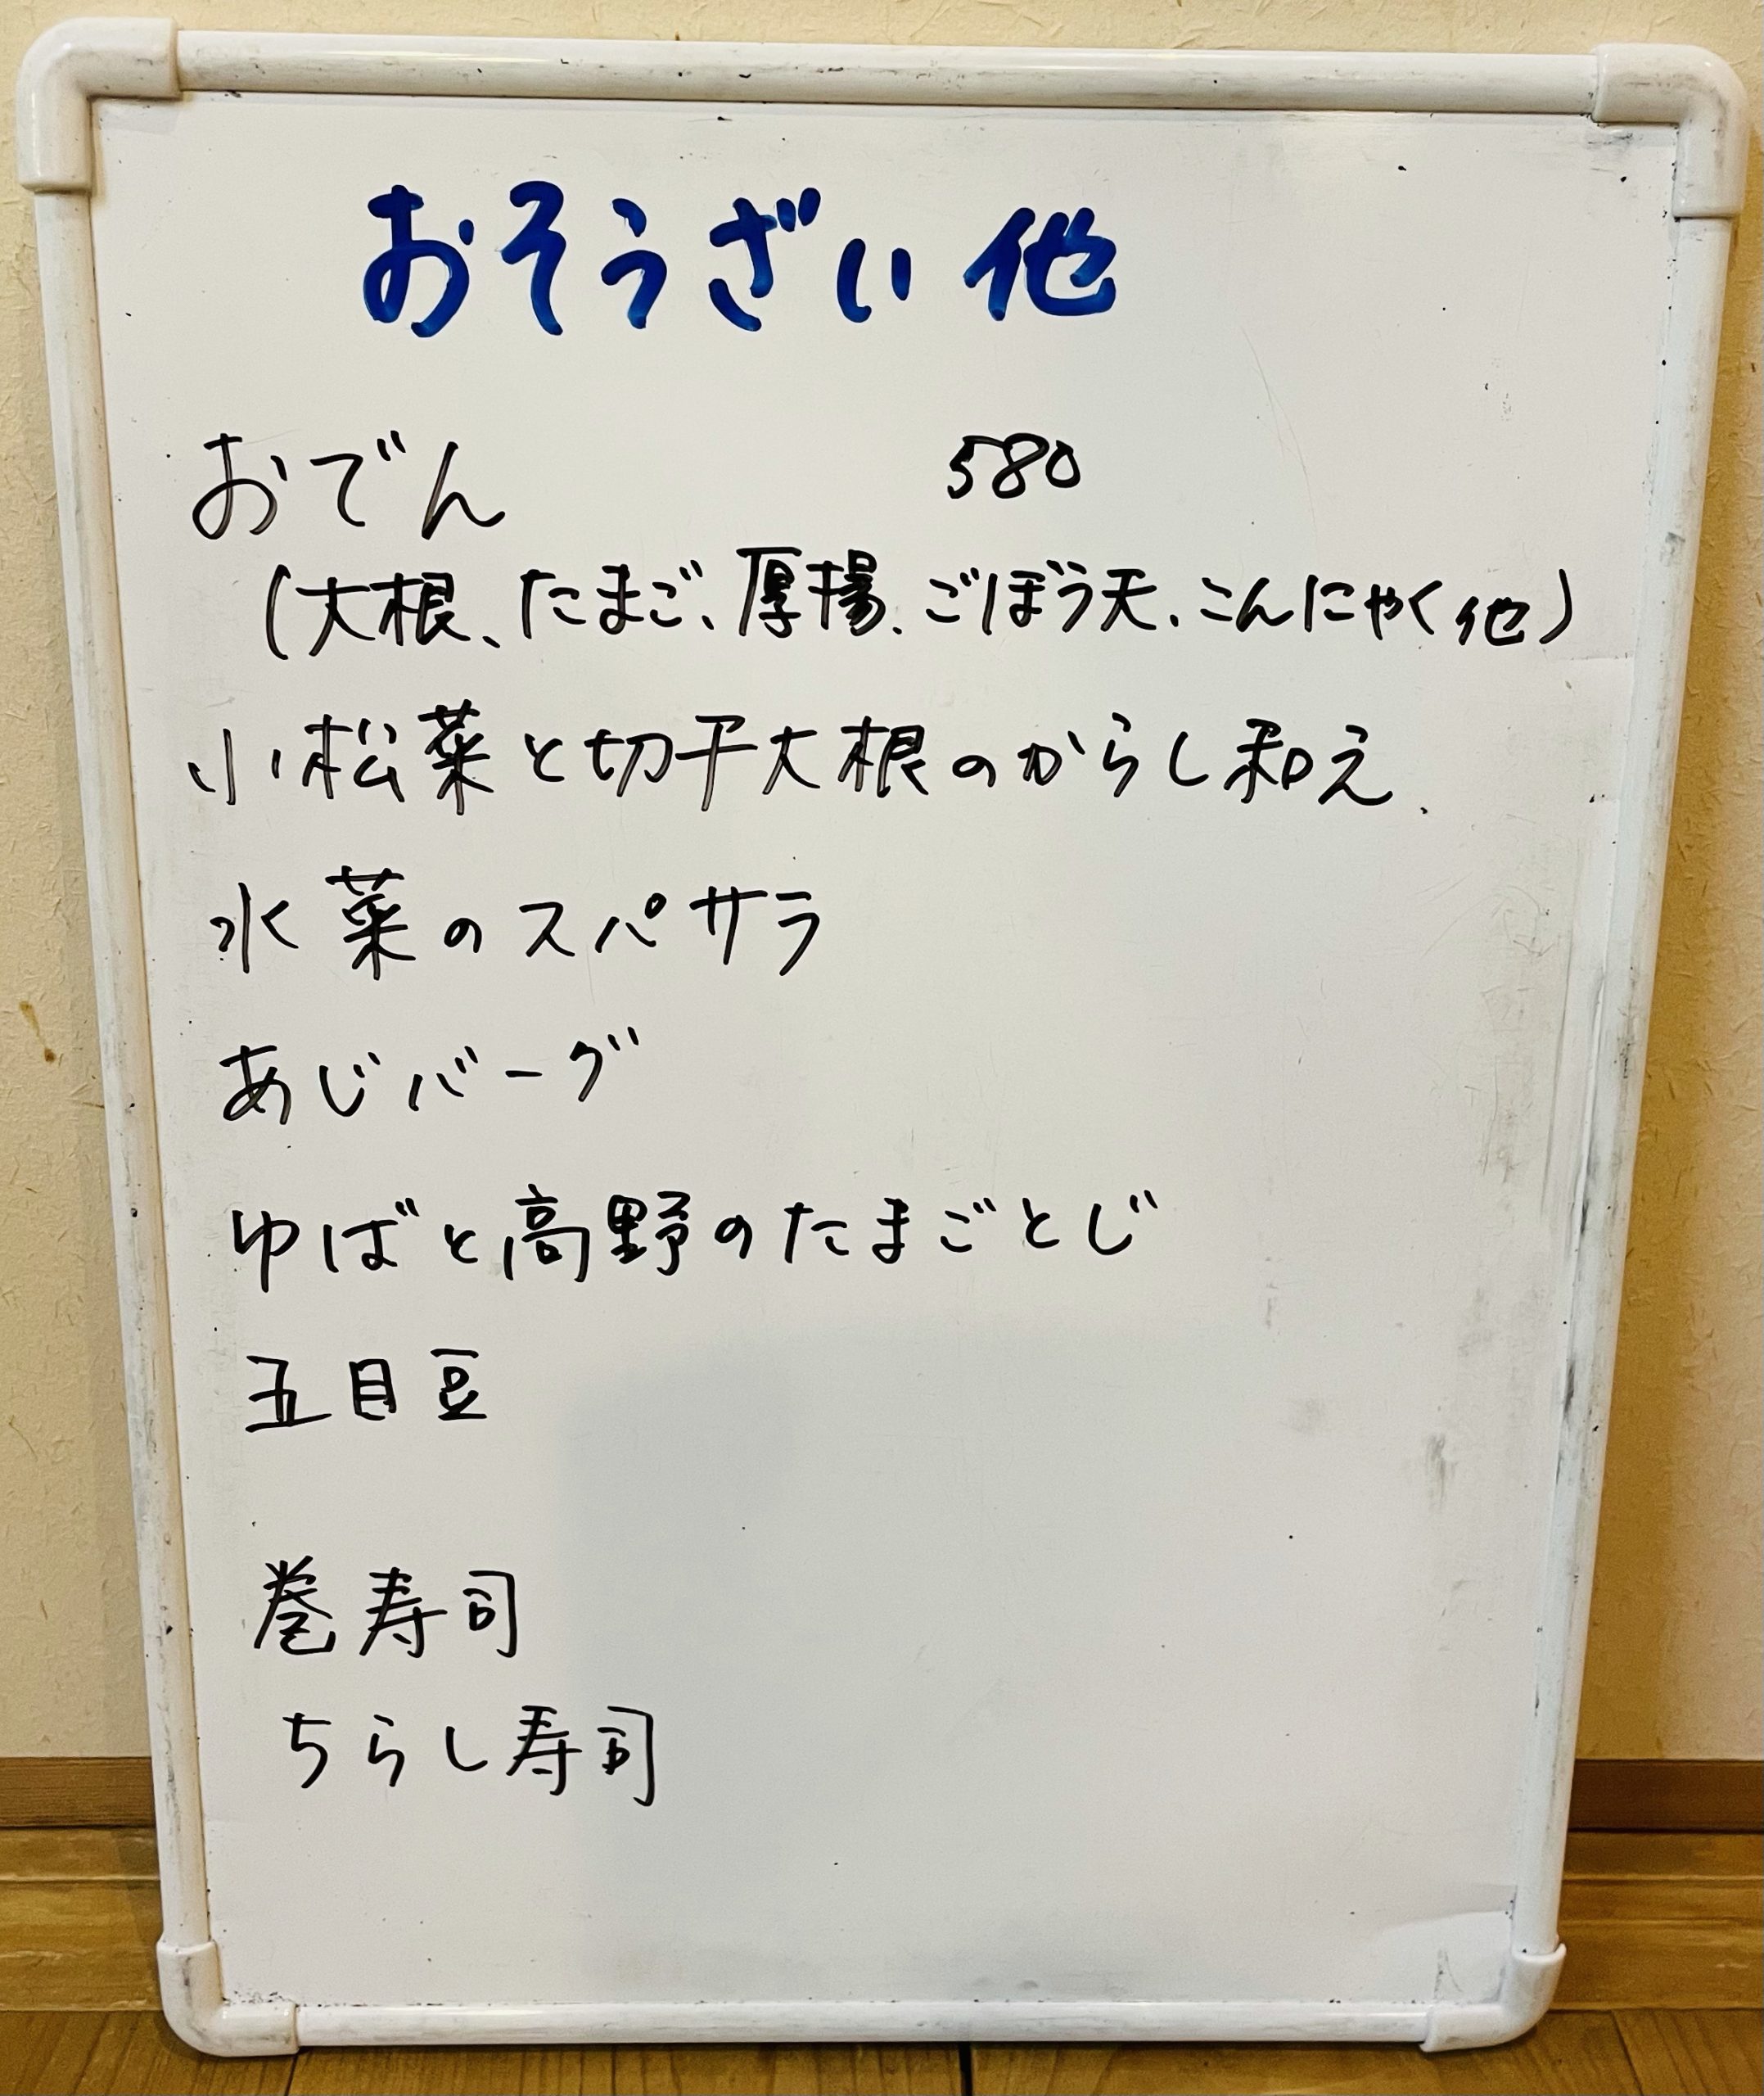 おそうざい 他
おでん 580
(大根、たまご、厚揚、ごぼう天、こんにゃく他)
小松菜と切干大根のからし和え
水菜のスパサラ
あじバーグ
ゆばと高野のたまごとじ
五目豆
巻寿司
ちらし寿司